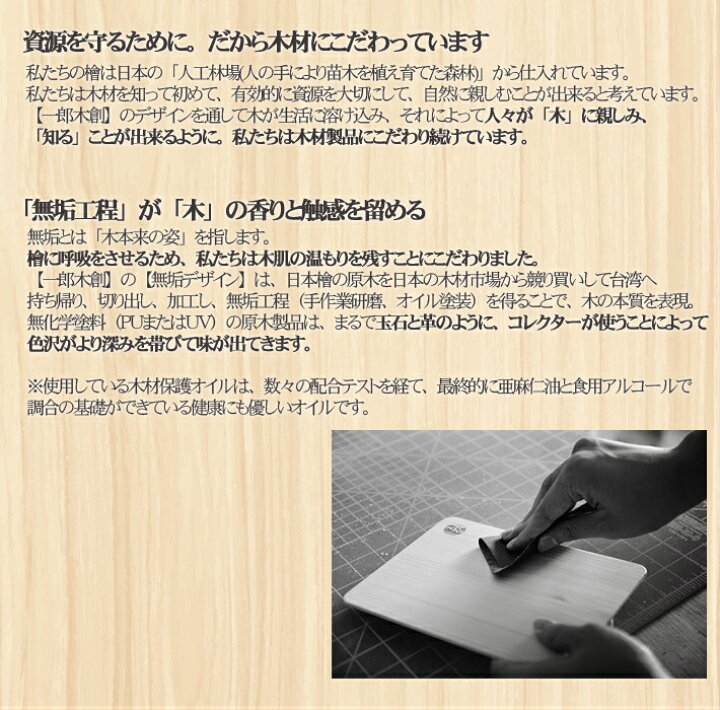 資源を守るために。だから木材にこだわっています
私たちの檜は日本の「人工林場(人の手により苗木を植え育てた森林)」から仕入れています。
私たちは木材を知って初めて、有効的に資源を大切にして、自然に親しむことが出来ると考えています。
【一郎木創】のデザインを通して木が生活に溶け込み、それによって人々が「木」に親しみ、
「知る」ことが出来るように。私たちは木材製品にこだわり続けています。
「無垢工程」が「木」の香りと触感を留める
無垢とは「木本来の姿」を指します。
檜に呼吸をさせるため、私たちは木肌の温もりを残すことにこだわりました。
【一郎木創】の【無垢デザイン】は、日本檜の原木を日本の木材市場から競り買いして台湾へ
持ち帰り、切り出し、加工し、無垢工程（手作業研磨、オイル塗装）を得ることで、木の本質を表現。
無化学塗料（PUまたはUV）の原木製品は、まるで玉石と革のように、コレクターが使うことによって
色沢がより深みを帯びて味が出てきます。
※使用している木材保護オイルは、数々の配合テストを経て、最終的に亜麻仁油と食用アルコールで
調合の基礎ができている健康にも優しいオイルです。